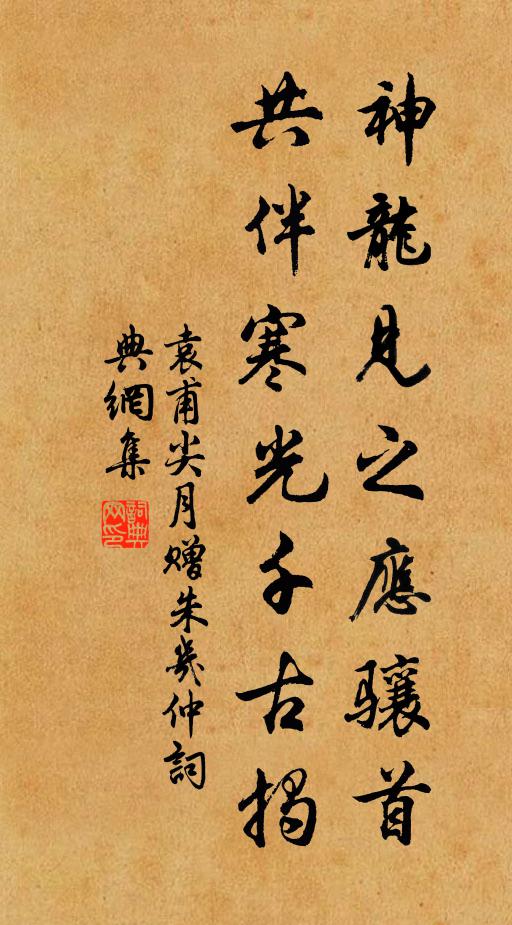 神龍見之應驤首
共伴寒光千古揭
袁甫尖月赠朱幾仲詞
典網集
詞典網印